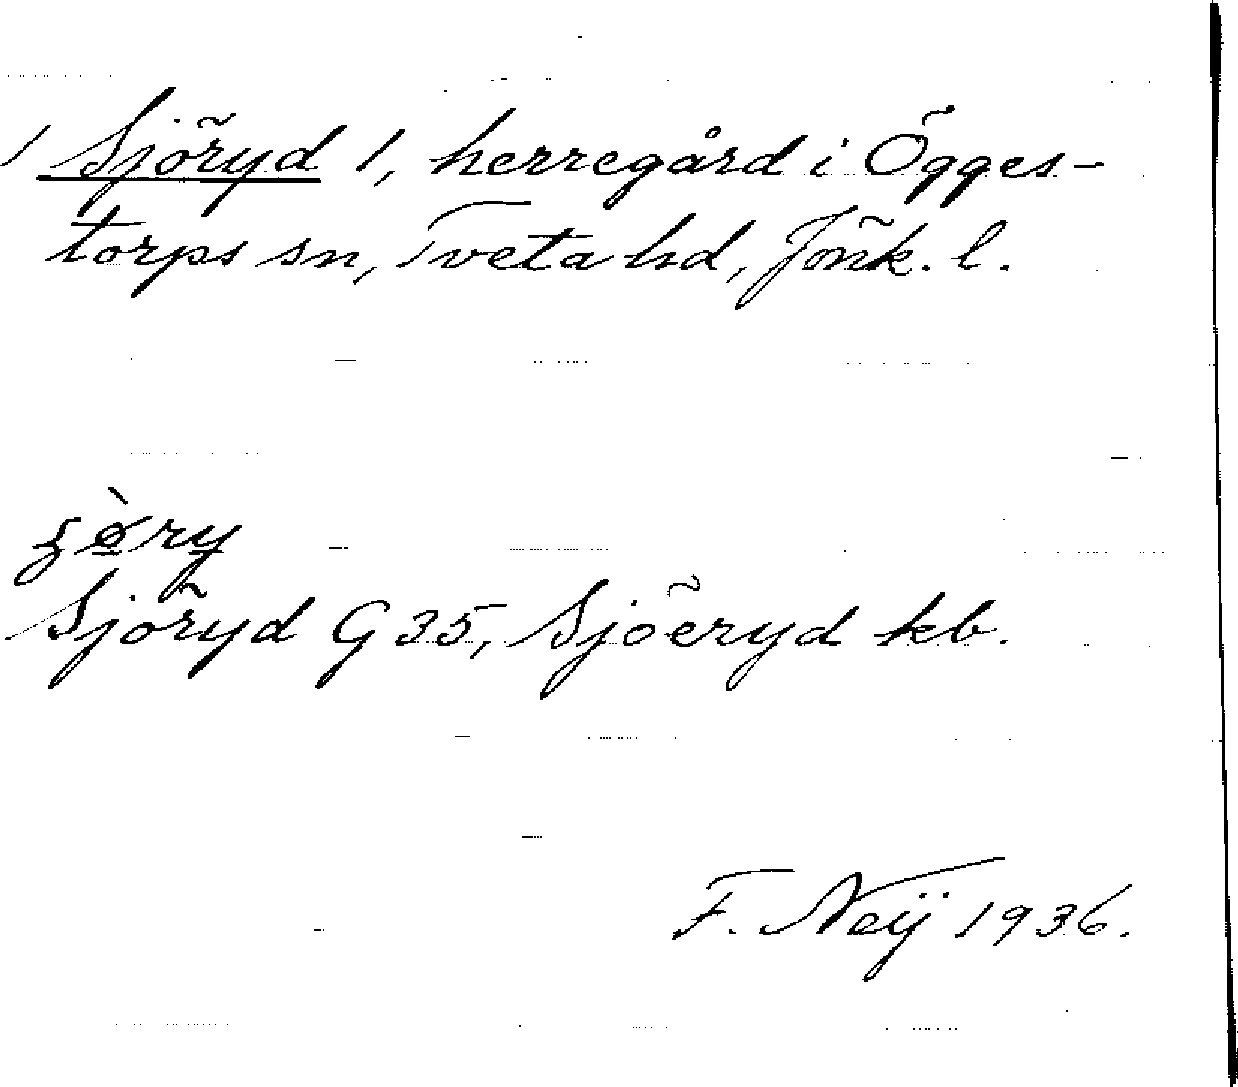 Sjöryd 1, herregård i Ögges-
torps sn, Tveta hd, Jönk. l.
Sjöryd G 35, Sjöeryd kb.
F. Neij 1936.